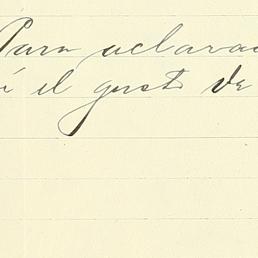 Para aclarac
i el gusto de